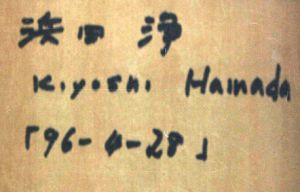 浜田 浄
Kiyoshi Hamada
「96-4-28」